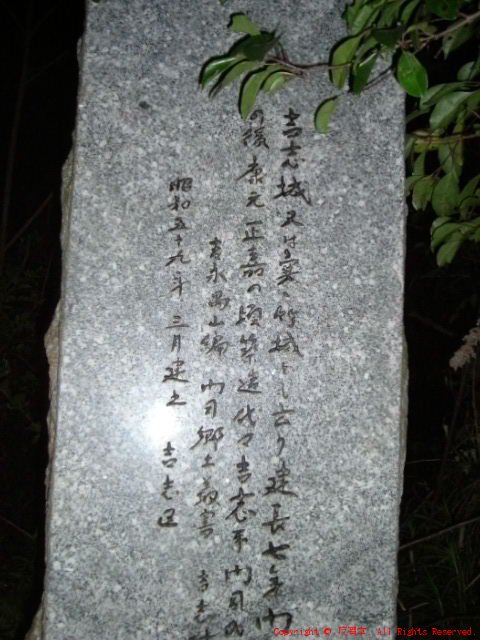 吉志城又は寒竹城とも云う建長七年
の後康元正嘉の頃築造代々吉志系門司氏
吉永禺山編 門司郷土叢書
昭和五十九年三月建之 吉志区
Copyright © All Rights Reserved.